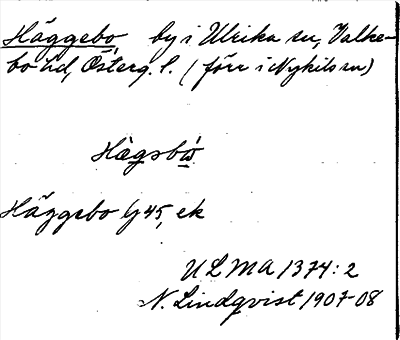 Häggebo, by i Ulrika sn, Valke-
bo hd, Österg. l. (förr i Nykils sn)
Hægsbò
Häggebo G 45, ek
ULMA 1374:2
N. Lindqvist 1907-08